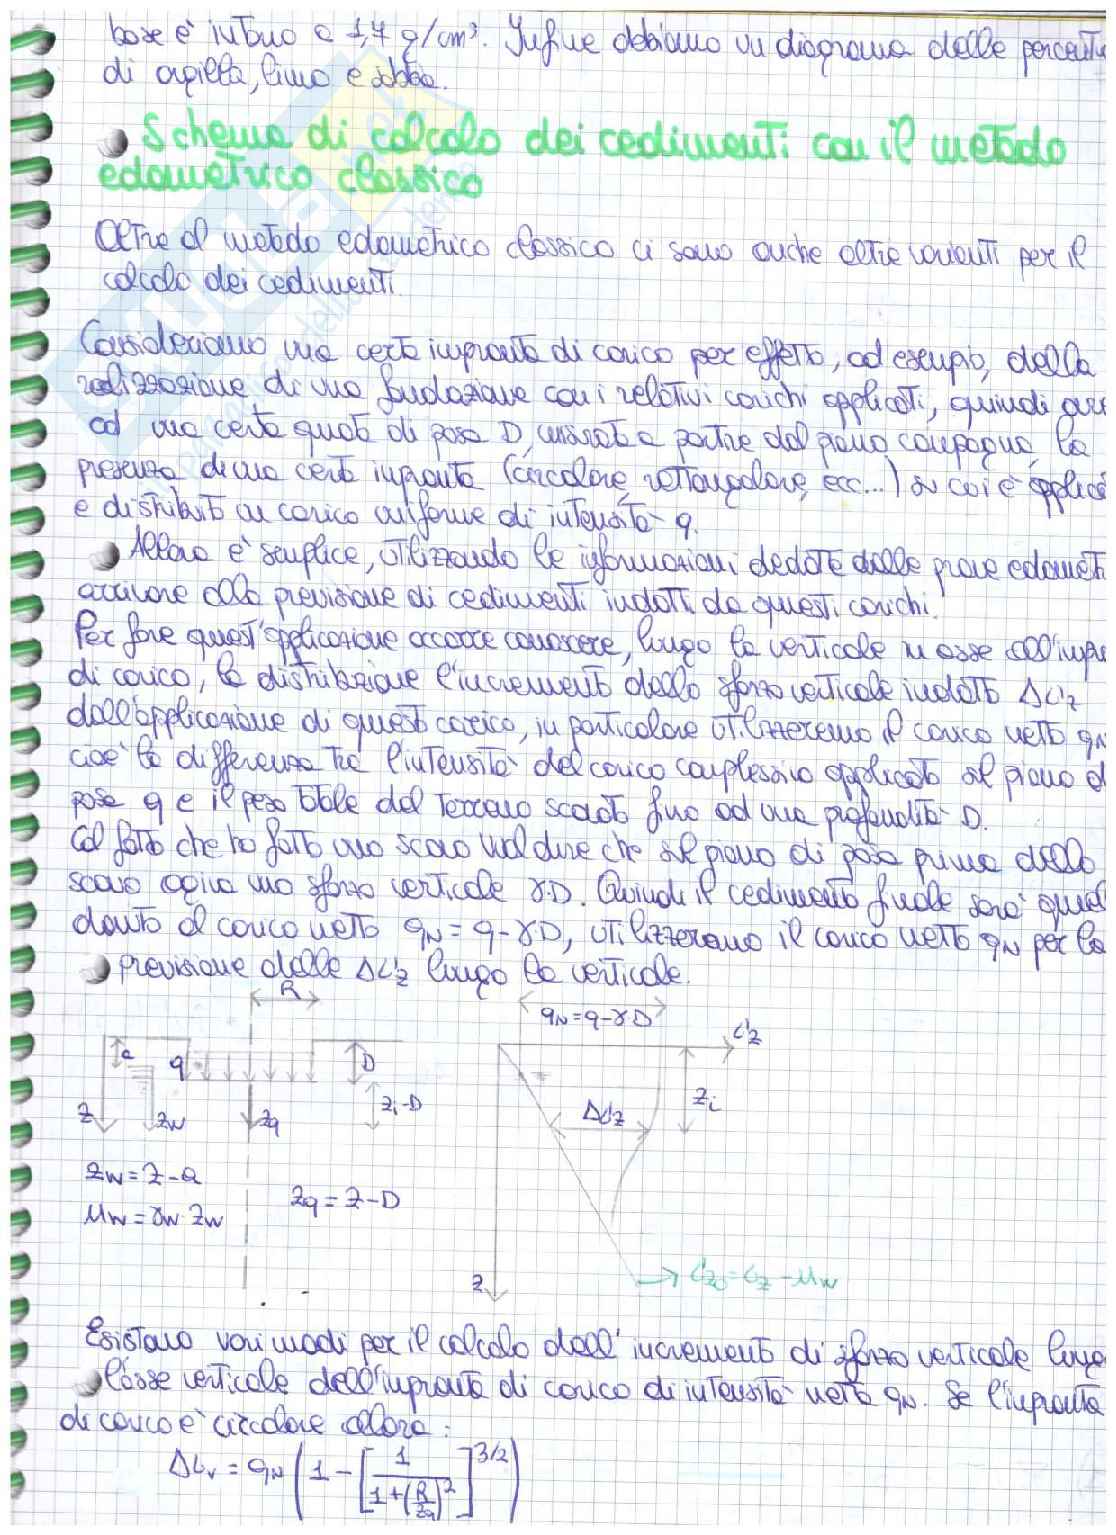 base è intorno a 1,7 g/cm³. Infine abbiamo un diagramma delle percentu
di argilla, limo e sabbia.
Schema di calcolo dei cedimenti con il metodo
edometrico classico
Oltre al metodo edometrico classico ci sono anche altre varianti per il
calcolo dei cedimenti.
Consideriamo una certa impronta di carico per effetto, ad esempio, della
realizzazione di una fondazione con i relativi carichi applicati, quindi avre
ad una certa quota di posa D, misurata a partire dal piano campagna, la
presenza di una certa impronta (circolare, rettangolare, ecc...) su cui è applica
e distribuito un carico uniforme di intensità q.
Allora è semplice, utilizzando le informazioni dedotte dalle prove edomet
arrivare alla previsione di cedimenti indotti da questi carichi.
Per fare quest'applicazione occorre conoscere, lungo la verticale in asse all'impr
di carico, la distribuzione l'incremento dello sforzo verticale indotto Δσ'z
dall'applicazione di questo carico, in particolare utilizzeremo il carico netto qN
cioè la differenza tra l'intensità del carico complessivo applicato sul piano di
posa q e il peso totale del terreno scavato fino ad una profondità D.
Col fatto che ho fatto uno scavo vuol dire che sul piano di posa prima dello
scavo agiva uno sforzo verticale γ·D. Quindi il cedimento finale sarà quel
dovuto al carico netto qN = q-γ·D, utilizzeremo il carico netto qN per la
previsione delle Δσ'z lungo la verticale.
R
qN=q-γD
σ'z
a
q
D
zi
z
zw
zq
zi-D
Δσ'z
zw=z-a
zq=z-D
uw=γw·zw
z
σ'z0=σz-uw
Esistono vari modi per il calcolo dell'incremento di sforzo verticale lungo
l'asse verticale dell'impronta di carico di intensità netta qN. Se l'impronta
di carico è circolare allora:
Δσv = qN (1 - [1/(1+(R/zq)²)]^3/2)